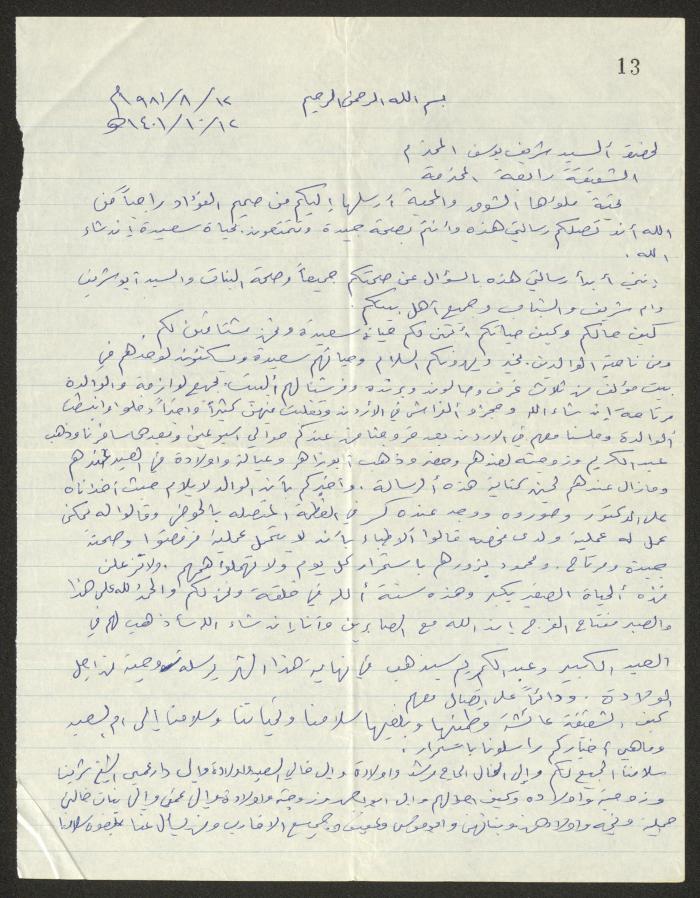 13
بسم الله الرحمن الرحيم ١٩٨١/٨/١٢م
١٤٠١/١٠/١٢هـ
لحضرة السيد شريف يوسف المحترم
الشقيقة رائعة المحترمة
تحية ملؤها الشوق والمحبة أرسلها إليكم من صميم الفؤاد راجياً من
الله أن تصلكم رسالتي هذه وأنتم بصحة جيدة وتتمتعون بحياة سعيدة إن شاء
الله .
إنني أبدأ رسالتي هذه بالسؤال عن صحتكم جميعاً وصحة البنات والسيد أبو شريف
وام شريف والشباب وجميع أهل بيتكم .
كيف حالكم وكيف حياتكم أتمنى لكم حياة سعيدة ونحن مشتاقين لكم
ومن ناحية الوالدين بخير ويهدونكم السلام وحياتهم سعيدة ويسكنون لوحدهم في
بيت مؤلف من ثلاث غرف وصالون وبرنده وفرشنا لهم البيت بجميع لوازمه والوالدة
مرتاحة إن شاء الله في الأردن كثيراً
الوالدة وجلسنا معهم في الاردن بعد خروجنا من عندكم حوالي اسبوعين وبعدها سافرنا وذهب
عبد الكريم وزوجته لعندهم وحضر وذهب أبو زاهر وعياله واولاده في العيد لعندهم
وما زال عندهم لحين كتابة هذه الرسالة . وأخبركم بأن الوالد حيث أخذناه
على الدكتور وصوروه ووجد عنده كسر في العظمة المتصله بالحوض وقالوا له ممكن
عمل له عملية ولدى فحصه قالوا الأطباء بأنه لا يتحمل عملية فرفضوا وصحته
جيدة ومرتاح . ومحمود يزورهم باستمرار كل يوم ولا تهملوا همهم . ولا تزعلن
فهذه الحياة الصغير يكبر وهذه سنة الله في خلقه ونحن لكم والحمد لله على هذا
والصبر مفتاح الفرج إن الله مع الصابرين وأنا إن شاء الله سأذهب لهم في
العيد الكبير وعبد الكريم سيذهب في نهاية هذا الشهر زوجته من اجل
الولادة . ودائماً على اتصال معهم
كيف الشقيقة عائشة وطمنها وبلغيها سلامنا وتحياتنا وسلامنا إلى ام السعيد
وما هي أخباركم راسلونا باستمرار .
سلامنا الجميع لكم وإلى الخال الحاج مرشد واولاده وإلى خالي السعيد واولاده وإلى دار عمي الشيخ شريف
وزوجته واولاده وكيف احوالهم وإلى وزوجته واولاده وإلى عمتي وإلى بنات خالتي
جميلة واولادهن وبناتهن وجميع الاقارب ومن يسأل عنا سلامنا